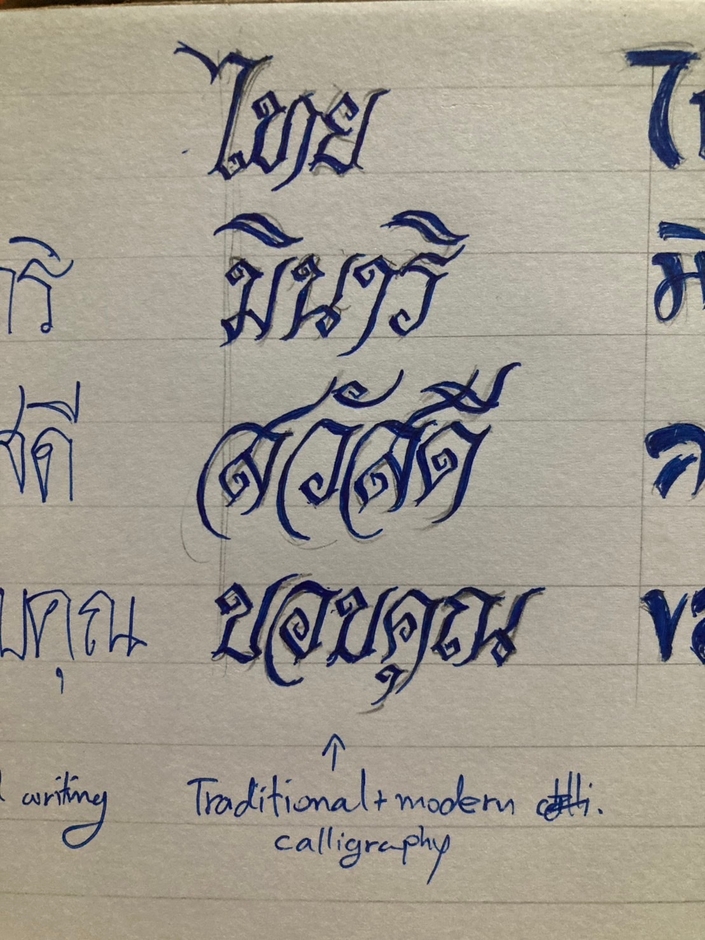 ไทย ไ
าริ มินาริ มิ
สดี สวัสดี ส
บคุณ ขอบคุณ ขอ
writing Traditional + modern
calligraphy